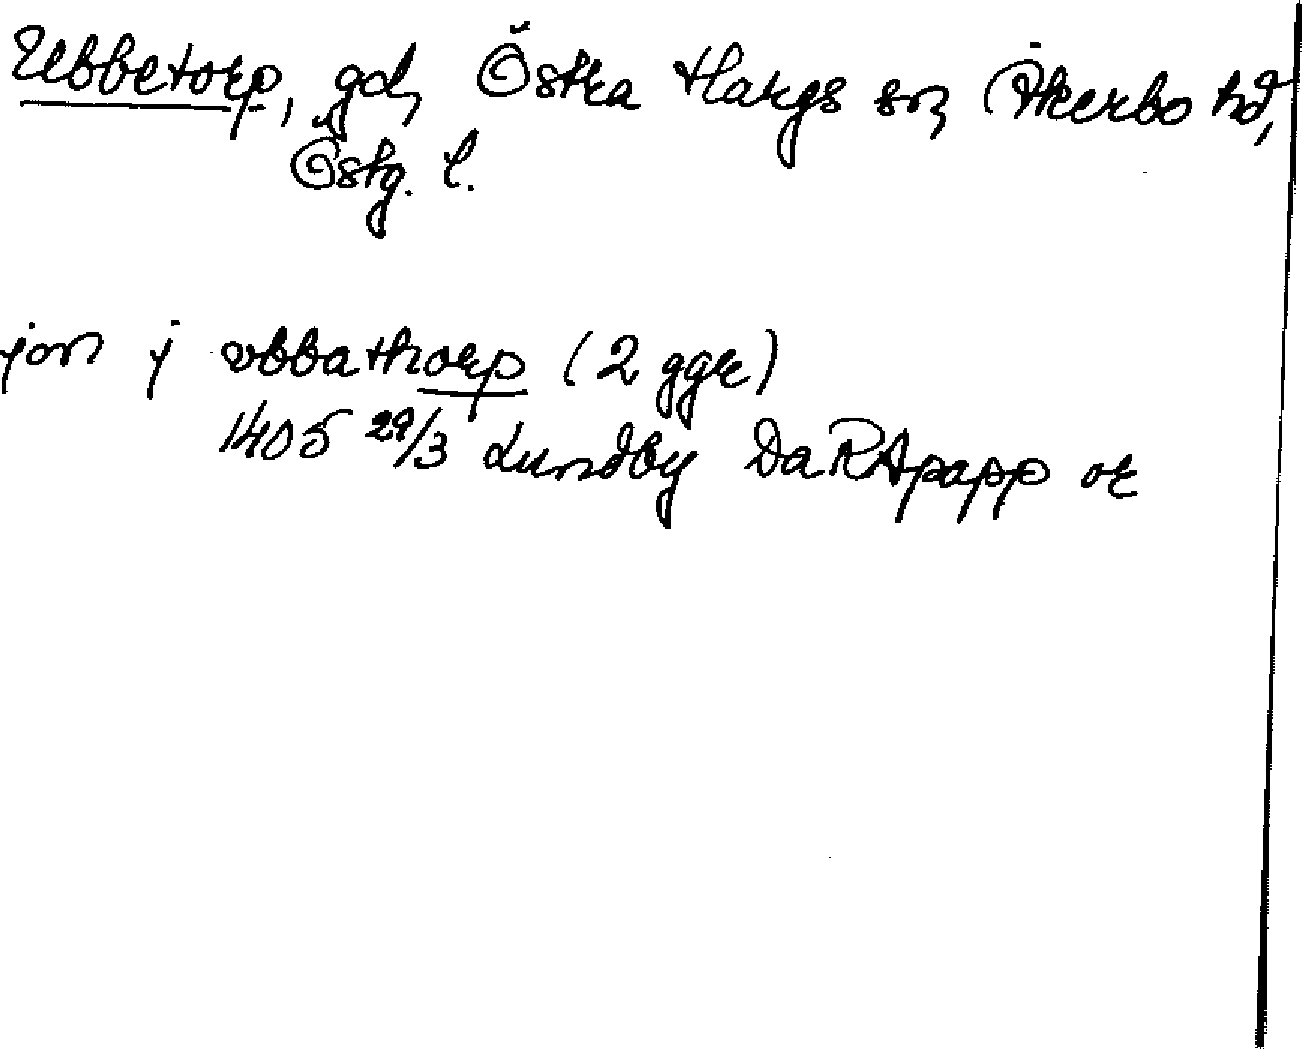 Ubbetorp, gd, Östra Hargs sn, Åkerbo hd,
Östg. l.
jon j vbbathorp (2 ggr)
1405 29/3 Lundby DaRApapp or